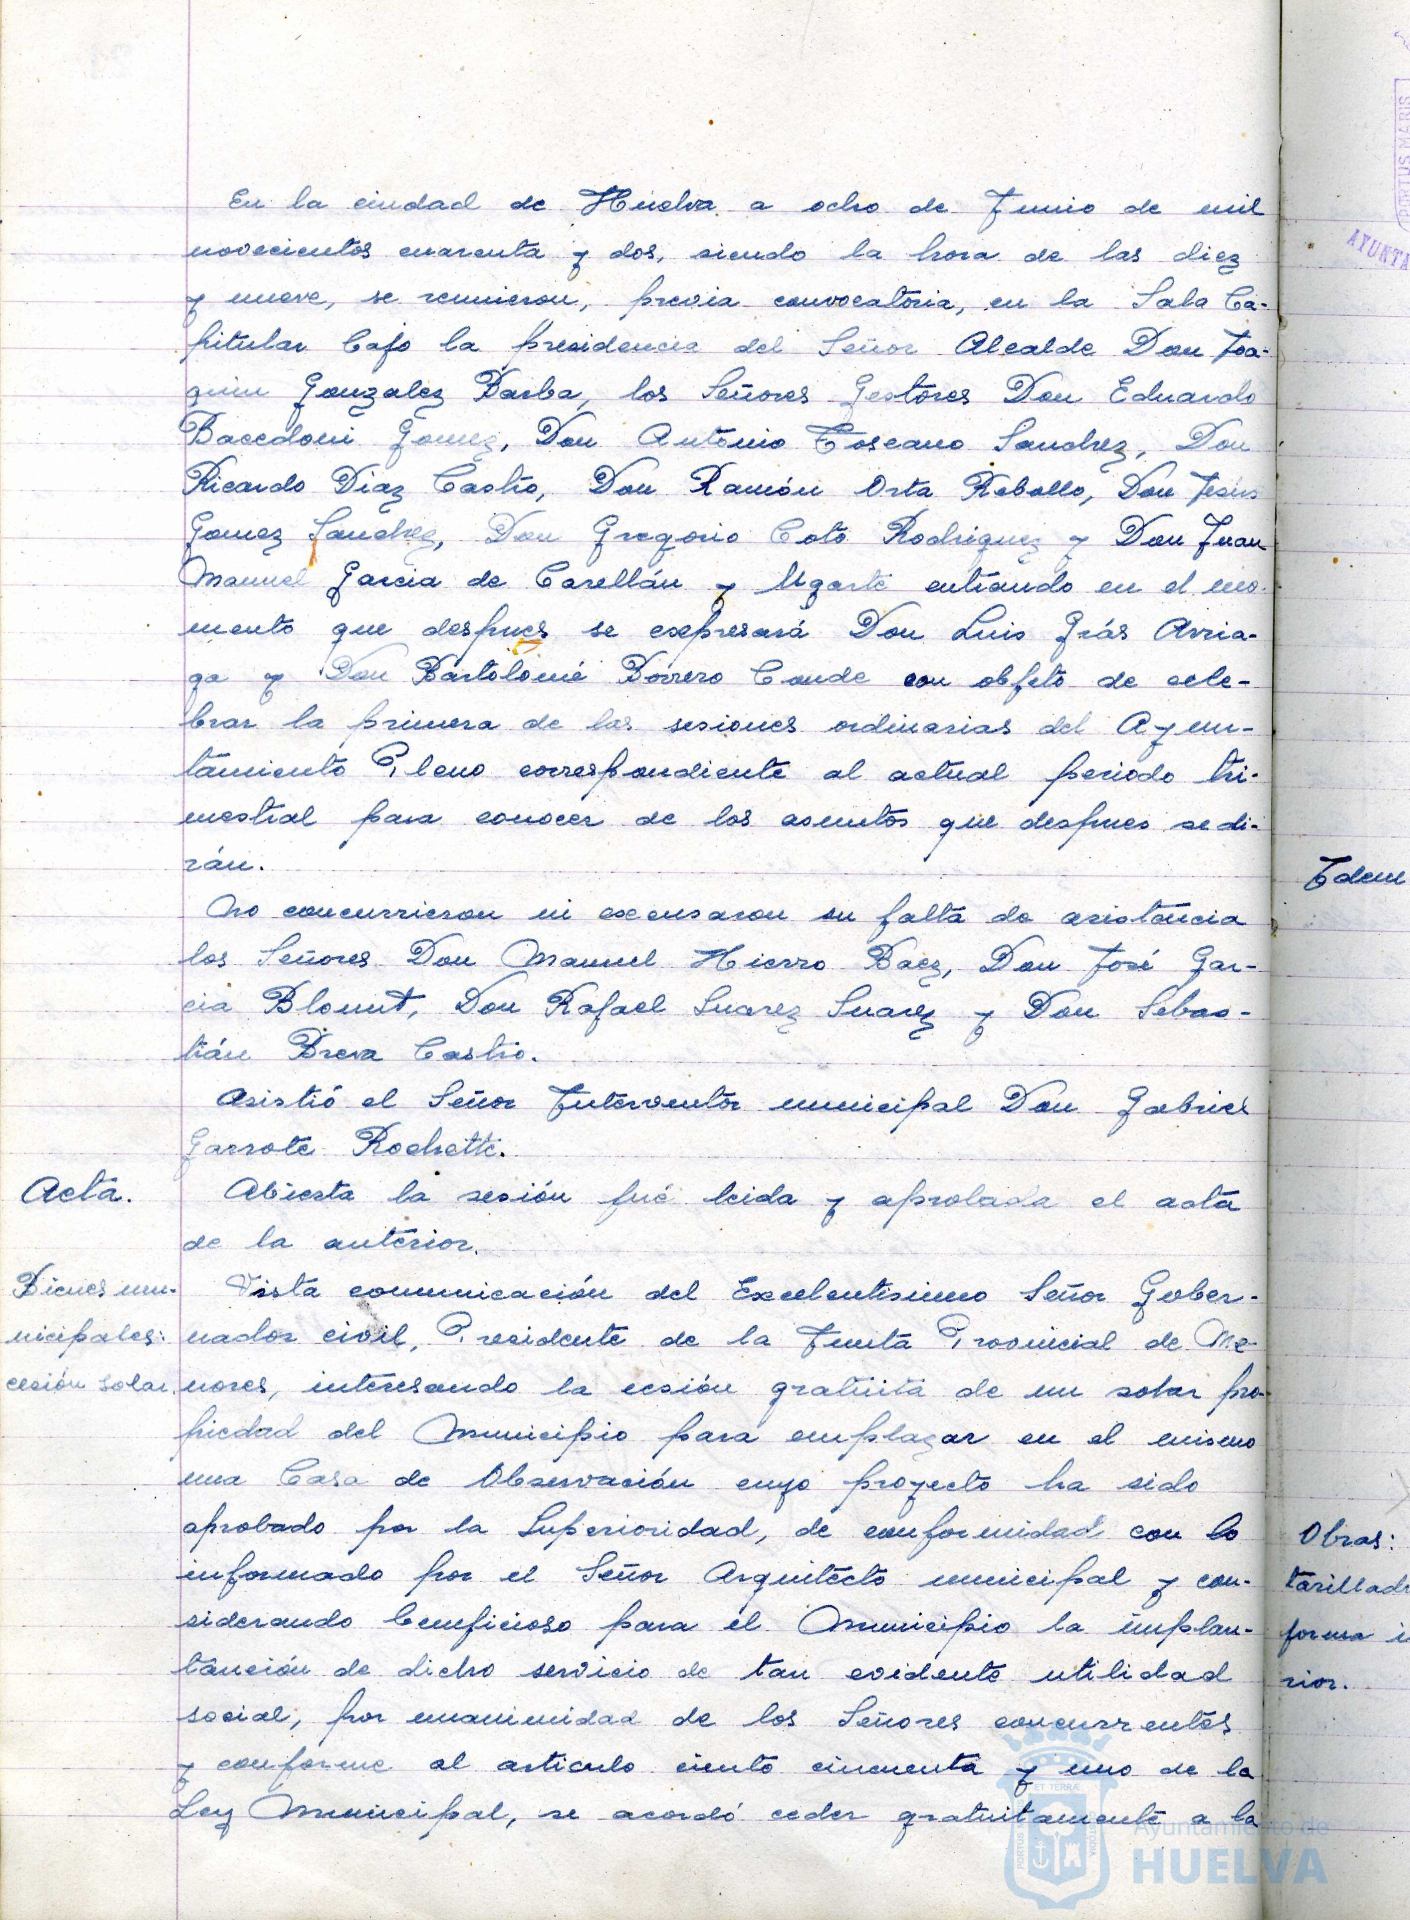 En la ciudad de Huelva a ocho de Junio de mil
novecientos cuarenta y dos, siendo la hora de las diez
y nueve, se reunieron, previa convocatoria, en la Sala Ca-
pitular bajo la presidencia del Señor Alcalde Don Joa-
quin Gonzalez Barba, los Señores Gestores Don Eduardo
Bacedoni Gomez, Don Antonio Toscano Sanchez, Don
Ricardo Diaz Castro, Don Ramón Orta Rebollo, Don Jesús
Gomez Sanchez, Don Gregorio Coto Rodriguez y Don Juan
Manuel Garcia de Carellán y Ugarte entrando en el mo-
mento que despues se expresará Don Luis Grás Arria-
ga y Don Bartolomé Borrero Conde con objeto de cele-
brar la primera de las sesiones ordinarias del Ayun-
tamiento Pleno correspondiente al actual periodo tri-
mestral para conocer de los asuntos que despues se di-
rán.
No concurrieron ni excusaron su falta de asistencia
los Señores Don Manuel Hierro Baez, Don José Gar-
cia Blount, Don Rafael Suarez Suarez y Don Sebas-
tián Breva Castro.
Asistió el Señor Interventor municipal Don Gabriel
Garrote Rochette.
Acta. Abierta la sesión fué leida y aprobada el acta
de la anterior.
Bienes mu- Vista comunicación del Excelentisimo Señor Gober-
nicipales: nador civil, Presidente de la Junta Provincial de Me-
cesión solar. nores, interesando la cesión gratuita de un solar pro-
piedad del Municipio para emplazar en el mismo
una Casa de Observación cuyo proyecto ha sido
aprobado por la Superioridad, de conformidad con lo
informado por el Señor Arquitecto municipal y con-
siderando beneficioso para el Municipio la implan-
tanción de dicho servicio de tan evidente utilidad
social, por unanimidad de los Señores concurrentes
y conforme al articulo ciento cincuenta y uno de la
Ley Municipal, se acordó ceder gratuitamente a la
PORTUS MARIS
AYUNTA
Idem
Obras:
forma i
rior.
ET TERRÆ
Ayuntamiento de
HUELVA